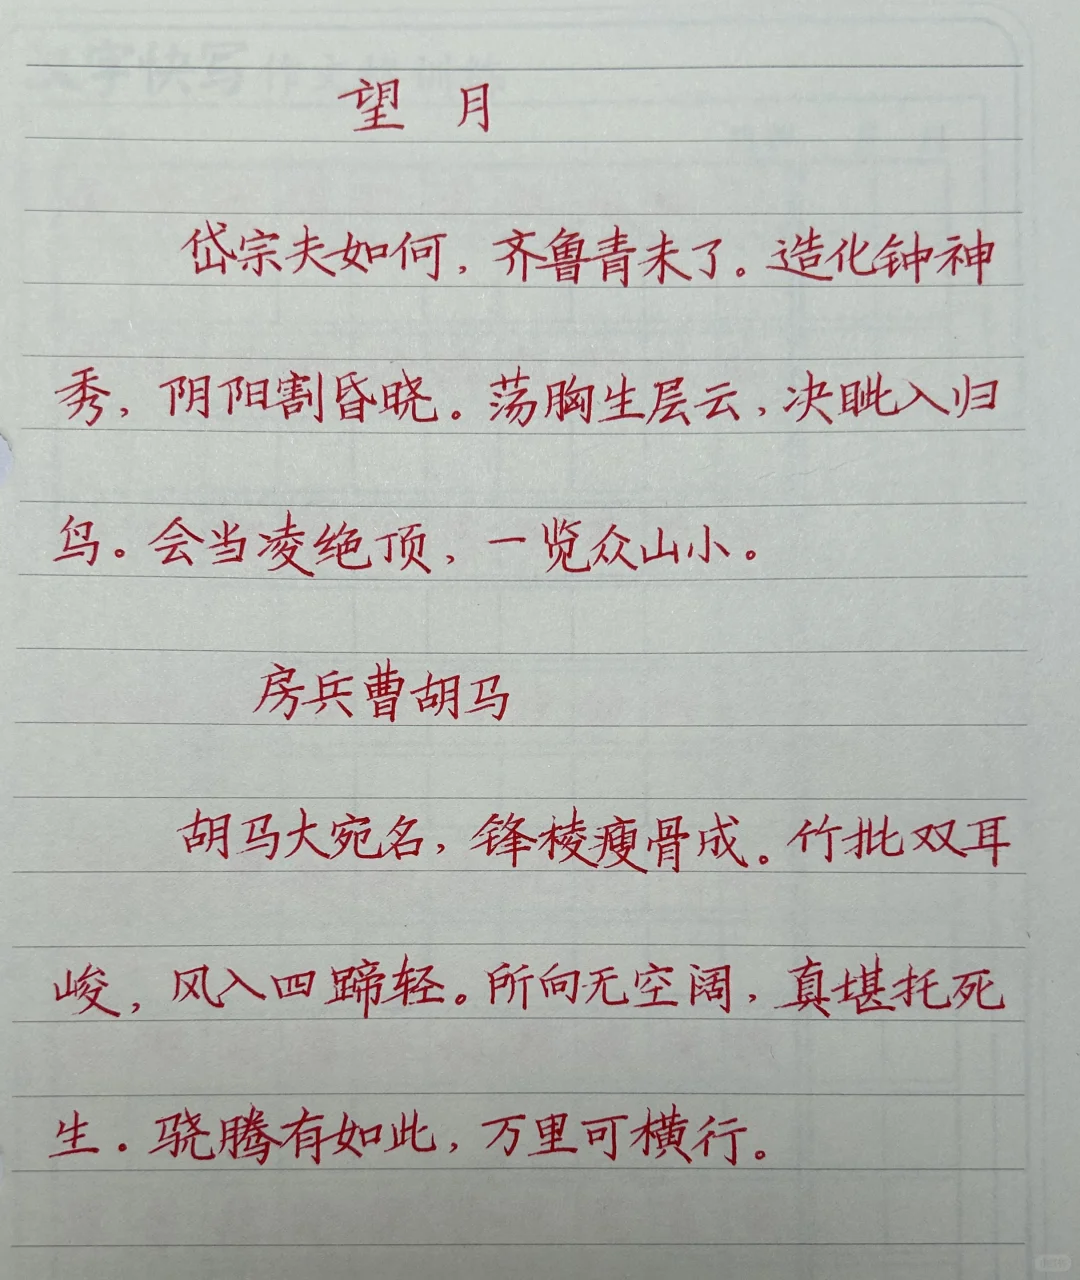 望 月
岱宗夫如何，齐鲁青未了。造化钟神
秀，阴阳割昏晓。荡胸生层云，决眦入归
鸟。会当凌绝顶，一览众山小。
房兵曹胡马
胡马大宛名，锋棱瘦骨成。竹批双耳
峻，风入四蹄轻。所向无空阔，真堪托死
生．骁腾有如此，万里可横行。